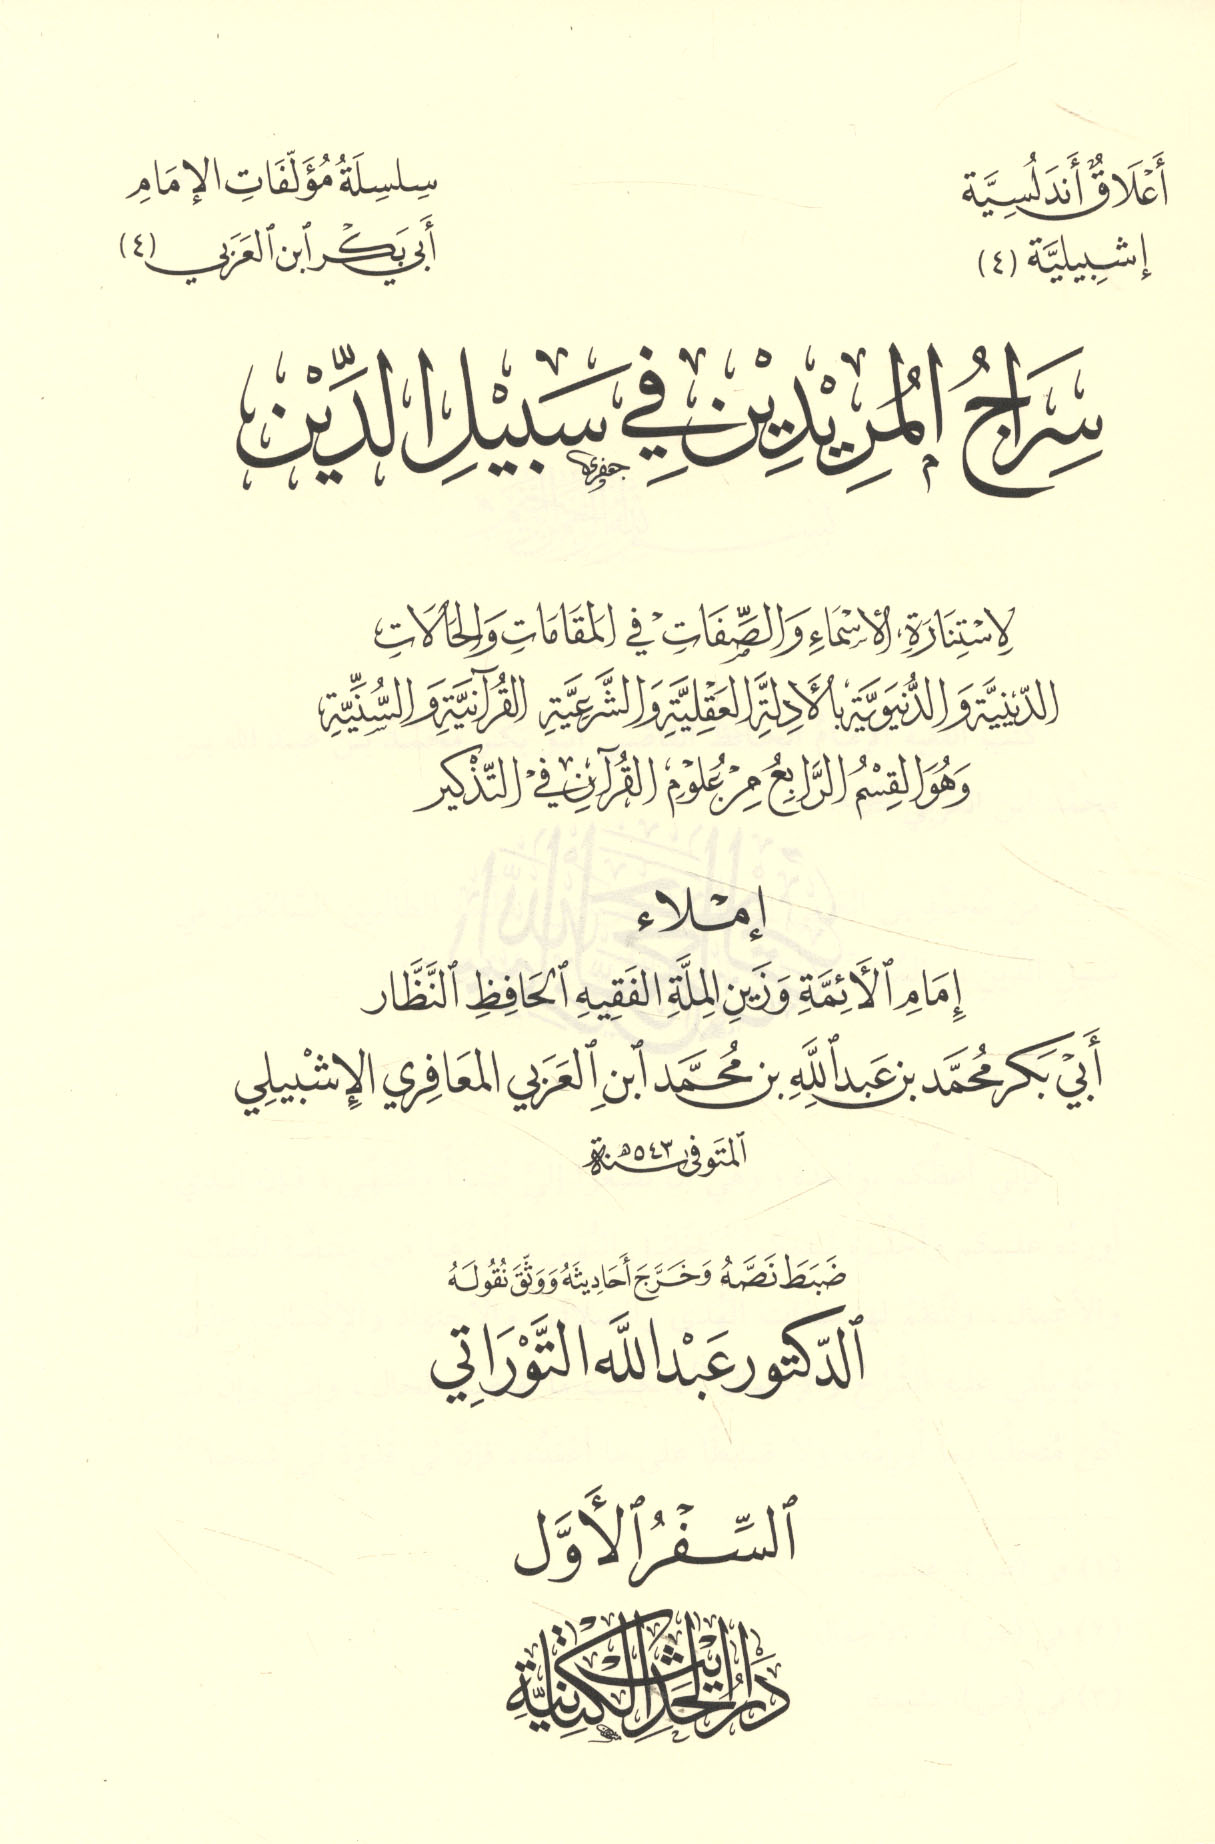 أَعْلَاقٌ أَندَلُسِيَّة
إشبِيلِيَّة (٤)
سِلسِلَةُ مُؤَلَّفَاتِ الإمَامِ
أَبِي بَكْر ٱبن ٱلعَرَبي (٤)
سِرَاجُ المُرِيْدِيْن فِي سَبِيْلِ الدِّيْن
لِاسْتِنَارَةِ الأسْمَاءِ وَالصِّفَاتِ فِي المَقَامَاتِ وَالحَالَاتِ
الدِّينِيَّةِ وَالدُّنْيَوِيَّةِ بِالأَدِلَّةِ العَقْلِيَّةِ وَالشَّرْعِيَّةِ القُرْآنِيَّةِ وَالسُّنِّيَّةِ
وَهُوَ القِسْمُ الرَّابِعُ مِنْ عُلُومِ القُرْآنِ فِي التَّذْكِيرِ
إمْلاء
إِمَامِ ٱلأَئِمَّةِ وَزَينِ المِلَّةِ الفَقِيهِ ٱلحَافِظِ ٱلنَّظَّار
أَبِي بَكر مُحَمَّد بن عَبدِ ٱللَّهِ بن مُحَمَّد ٱبنِ ٱلعَرَبي المَعَافِرِي الإِشْبِيلِي
ٱلمتَوفى سنة ٥٤٣هـ
ضَبَطَ نَصَّهُ وَخَرَّجَ أَحَادِيثَهُ وَوَثَّقَ نُقُولَهُ
ٱلدّكتور عَبْد اللَّه التَّوْرَاتي
ٱلسِّفْرُ ٱلأَوَّل
دَارُ الحَدِيثِ الكَتَّانِيَّةِ